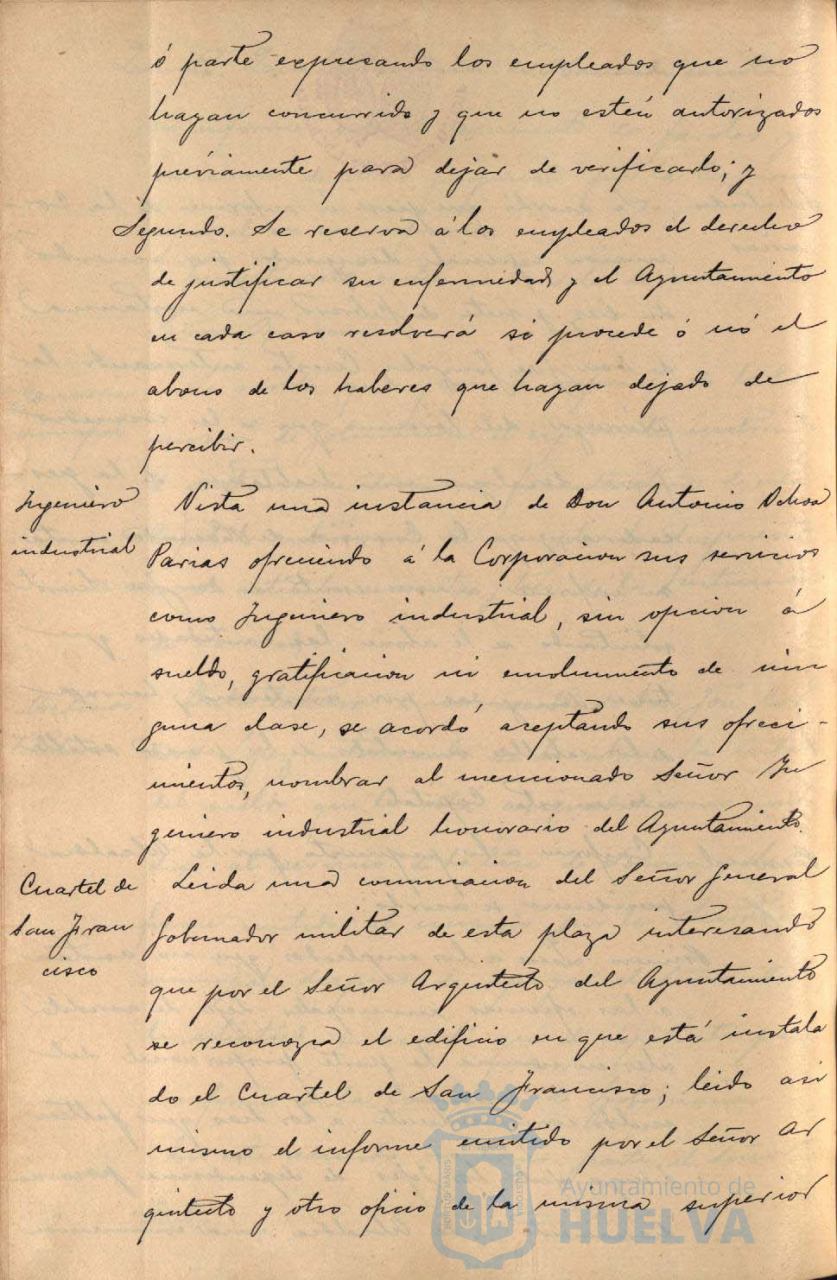 ó parte expresando los empleados que no
hayan concurrido y que no estén autorizados
préviamente para dejar de verificarlo; y
Segundo. Se reserva á los empleados el derecho
de justificar su enfermedad y el Ayuntamiento
en cada caso resolverá si procede ó nó el
abono de los haberes que hayan dejado de
percibir.
Ingeniero
industrial
Vista una instancia de Don Antonio Ochoa
Parias ofreciendo á la Corporacion sus servicios
como Ingeniero industrial, sin opcion á
sueldo, gratificacion ni emolumento de nin
guna clase, se acordó aceptando sus ofreci-
mientos, nombrar al mencionado Señor In
geniero industrial honorario del Ayuntamiento.
Cuartel de
San Fran
cisco
Leida una comunicacion del Señor General
Gobernador militar de esta plaza interesando
que por el Señor Arquitecto del Ayuntamiento
se reconozca el edificio en que está instala
do el Cuartel de San Francisco; leido asi
mismo el informe emitido por el Señor Ar
quitecto y otro oficio de la misma superior
Ayuntamiento de
HUELVA